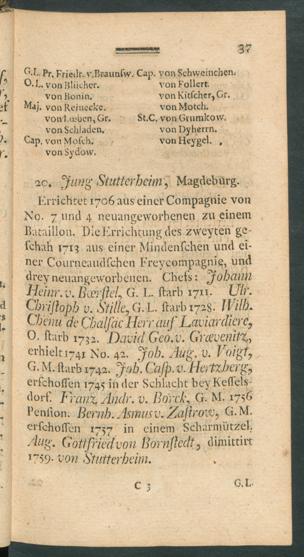 37
G.L. Pr. Friedr. v. Braunsw. Cap. von Schweinchen.
O.L. von Blücher. von Follert.
von Bonin. von Kitscher, Gr.
Maj. von Reinecke. von Motch.
von Lœben, Gr. St.C. von Grumkow.
von Schladen. von Dyherrn.
Cap. von Mosch. von Heygel.
von Sydow.
20. Jung Stutterheim, Magdeburg.
Errichtet 1706 aus einer Compagnie von
No. 7 und 4 neuangeworbenen zu einem
Bataillon. Die Errichtung des zweyten ge-
schah 1713 aus einer Mindenschen und ei-
ner Courneaudschen Freycompagnie, und
drey neuangeworbenen. Chefs: Johann
Heinr. v. Bœrstel, G. L. starb 1711. Ulr.
Christoph v. Stille, G. L. starb 1728. Wilh.
Chenu de Chalsac Herr auf Laviardiere,
O. starb 1732. David Geo. v. Grævenitz,
erhielt 1741 No. 42. Joh. Aug. v. Voigt,
G. M. starb 1742. Joh. Casp. v. Hertzberg,
erschossen 1745 in der Schlacht bey Kessels-
dorf. Franz Andr. v. Borck, G. M. 1756
Pension. Bernh. Asmus v. Zastrow, G. M.
erschossen 1757 in einem Scharmützel.
Aug. Gottfried von Bornstedt, dimittirt
1759. von Stutterheim.
C 3 G.L.